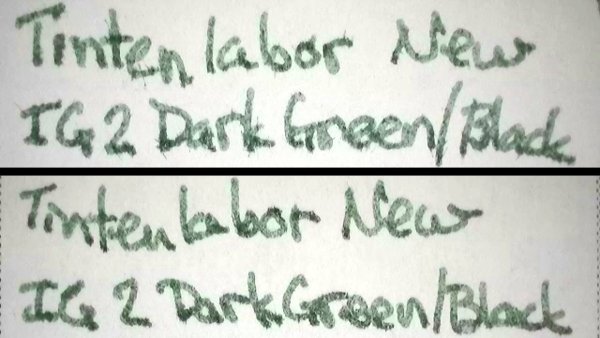 Tinten labor New
IG 2 Dark Green/Black
Tintenlabor New
IG 2 Dark Green/Black